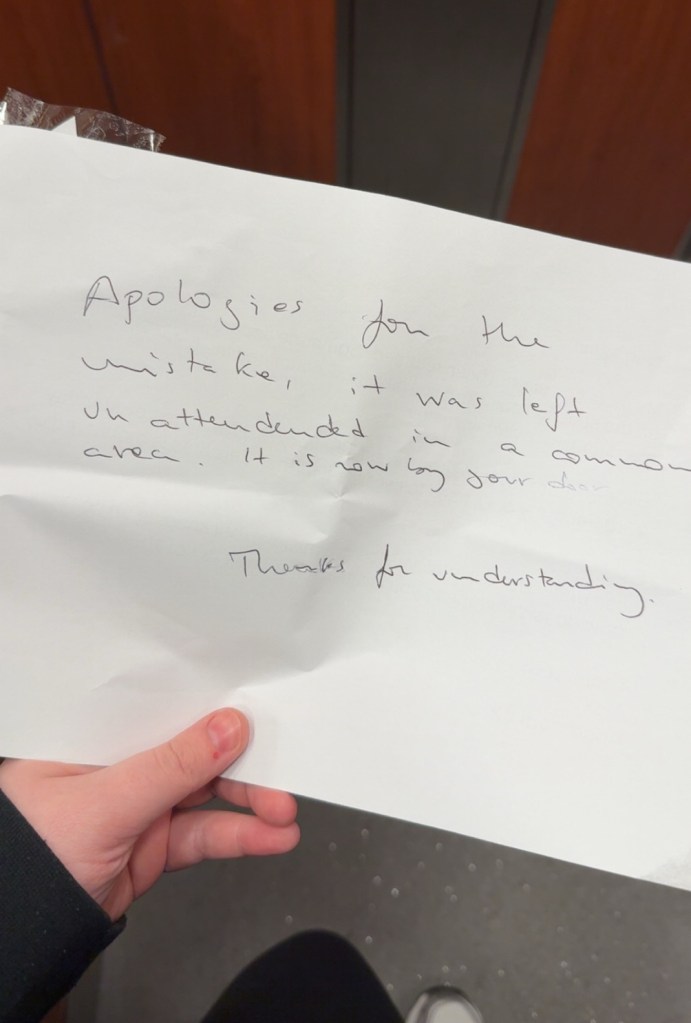 Apologies for the
mistake, it was left
unattendended in a common
area. It is now by your door
Thanks for understanding.